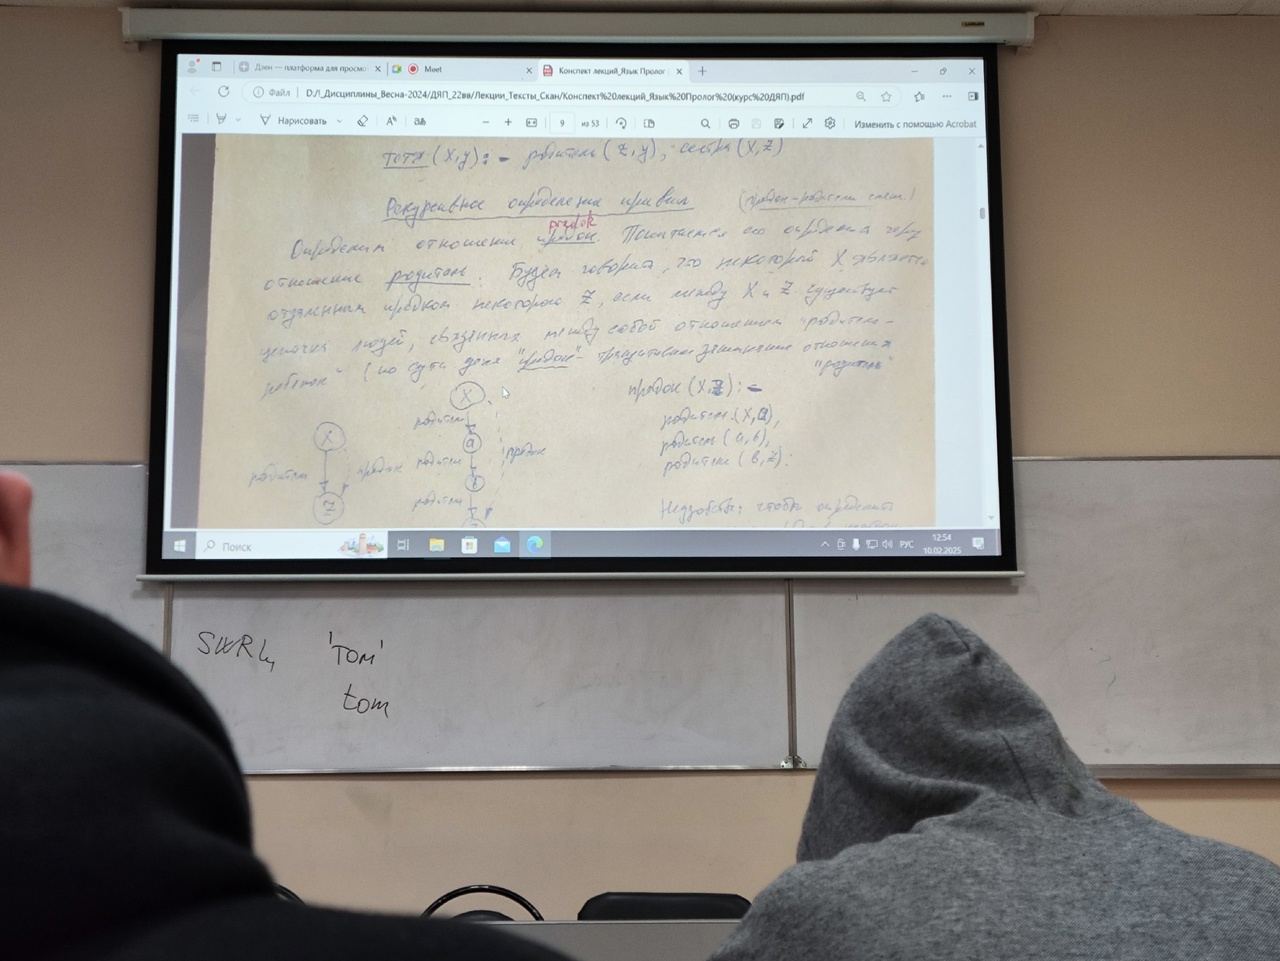 Дзен — платформа для просмо
Meet
Конспект лекций_Язык Пролог
Файл
D:/I_Дисциплины_Весна-2024/ДЯП_22вв/Лекции_Тексты_Скан/Конспект%20лекций_Язык%20Пролог%20(курс%20ДЯП).pdf
Нарисовать
9 из 53
Изменить с помощью Acrobat
тетя (X,y) :- родитель (Z,y), сестра (X,Z)
Рекурсивное определение правил
predok
Определим отношение предок. Попытаемся его определить через
отношение родитель. Будем говорить, что некоторый X является
отдаленным предком некоторого Z, если между X и Z существует
цепочка людей, связанных между собой отношением "родитель-
ребенок" (по сути дела "предок" - транзитивное замыкание отношения
"родитель"
X
родитель
предок
Z
X
родитель
a
родитель
b
родитель
предок
предок (X,Z) :-
родитель (X,a),
родитель (a,b),
родитель (b,Z).
Неудобство: чтобы определить
Поиск
РУС
12:54
10.02.2025
SWRL,
'Tom'
tom